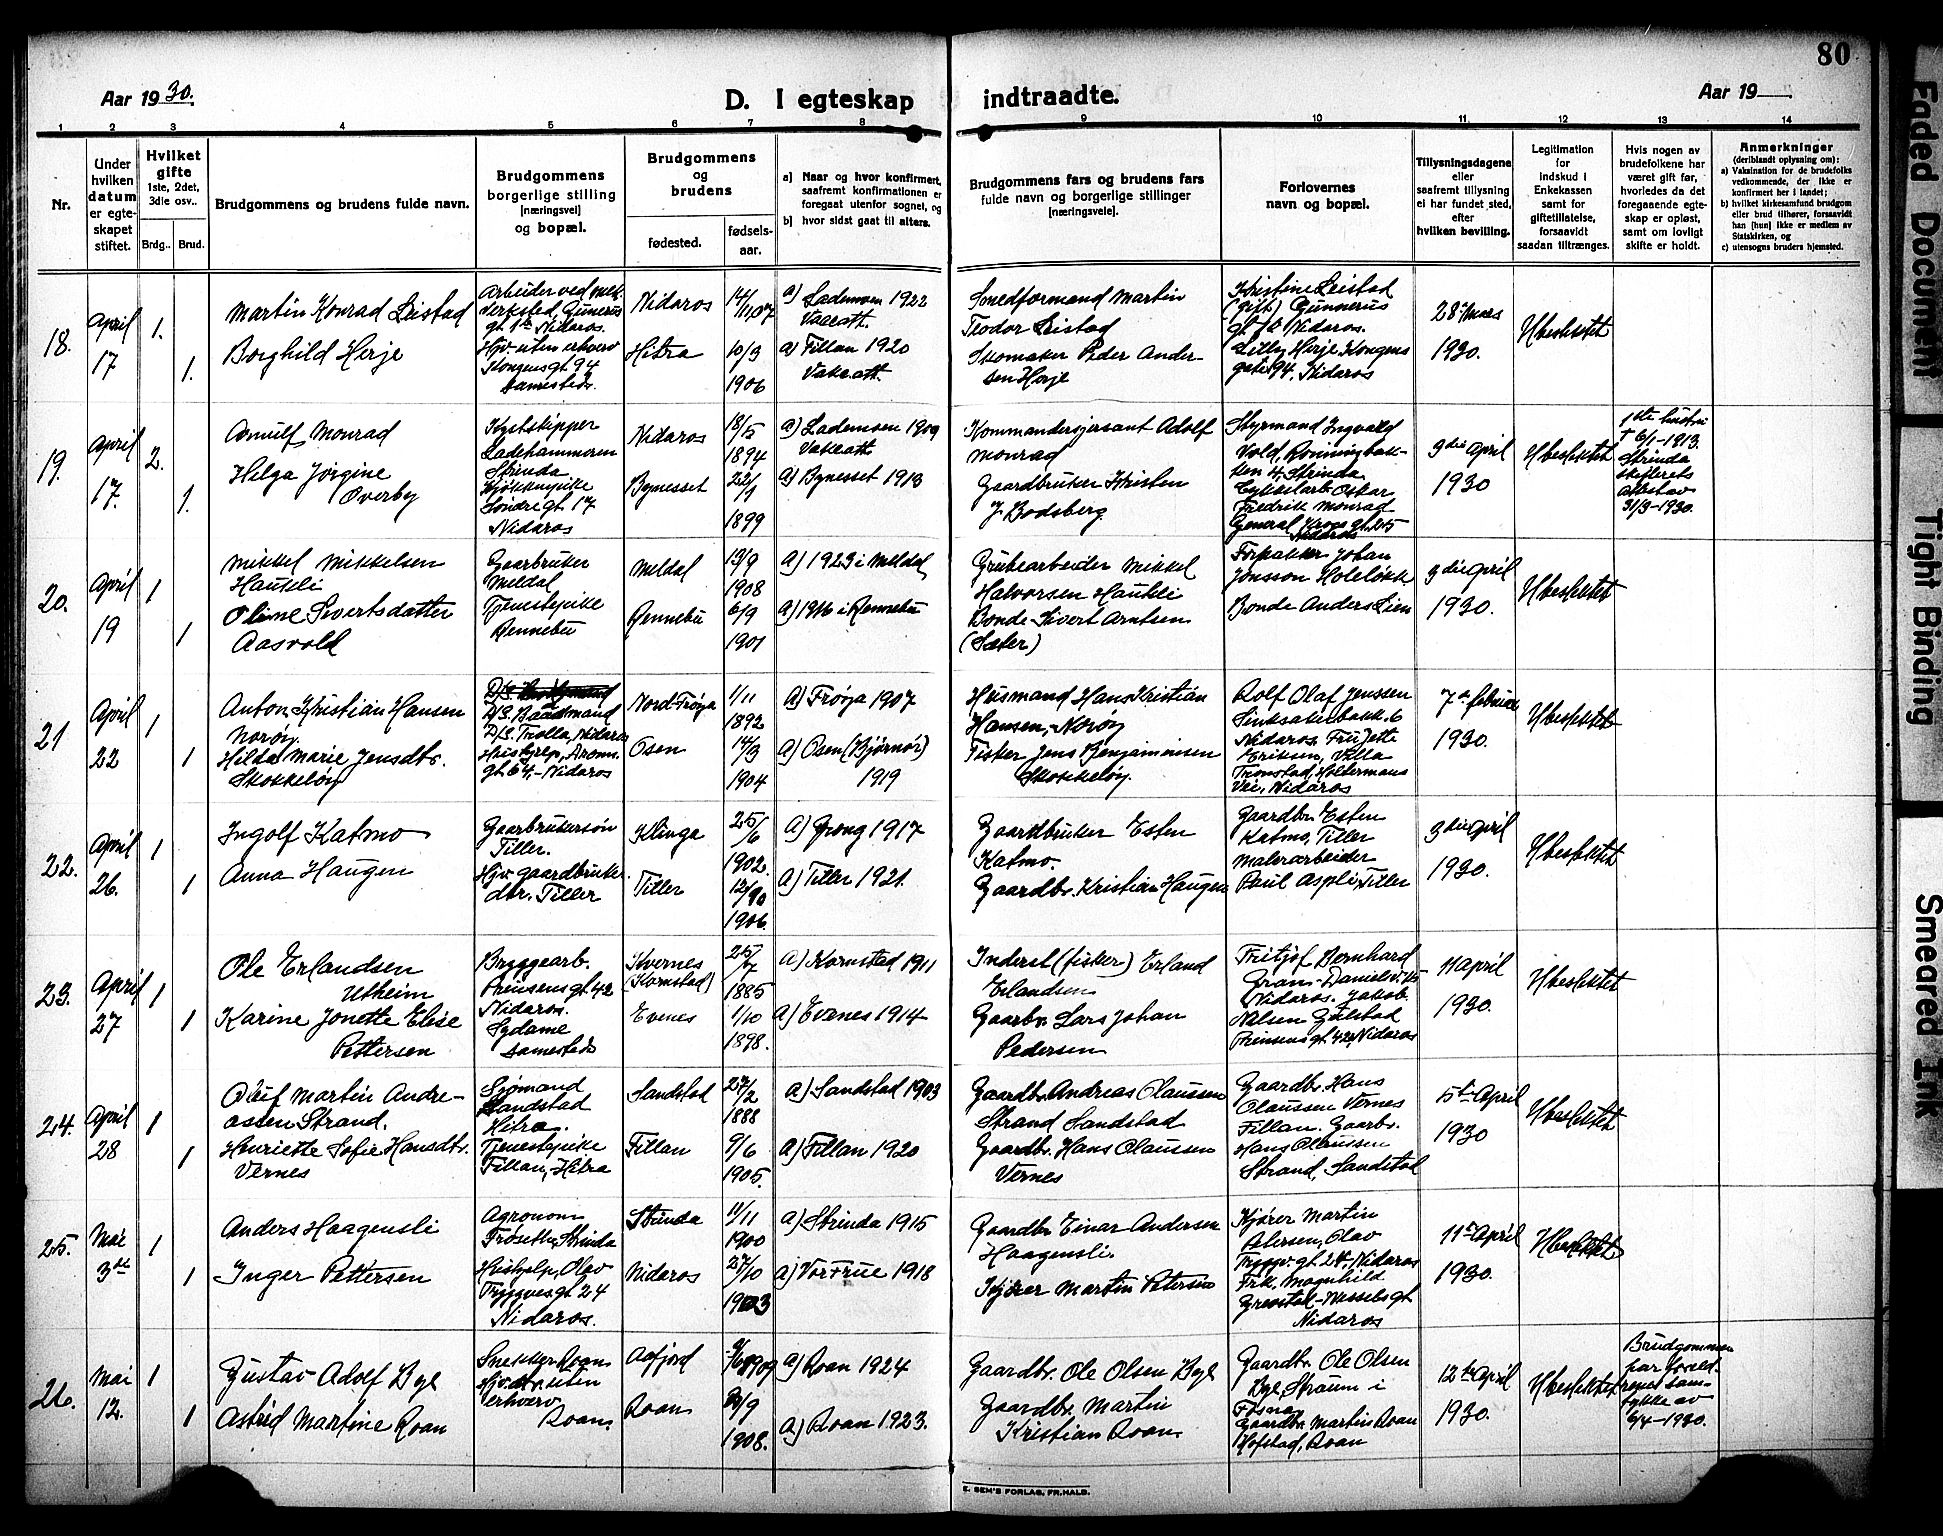 80
Aar 1930.
D. I egteskap indtraadte.
Aar 19
1 2 3 4 5 6 7 8 9 10 11 12 13 14
Nr.
Under
hvilken
datum
er egte-
skapet
stiftet.
Hvilket
gifte
1ste, 2det,
3die osv..
Brdg.. Brud.
Brudgommens og brudens fulde navn.
Brudgommens
borgerlige stilling
[næringsvei]
og bopæl.
Brudgommens
og
brudens
fødested.
fødsels-
aar.
a) Naar og hvor konfirmert,
saafremt konfirmationen er
foregaat utenfor sognet, og
b) hvor sidst gaat til alters.
Brudgommens fars og brudens fars
fulde navn og borgerlige stillinger
[næringsveie].
Forlovernes
navn og bopæl.
Tillysningsdagene
eller
saafremt tillysning
ei har fundet sted,
efter
hvilken bevilling.
Legitimation
for
indskud i
Enkekassen
samt for
giftetillatelse,
forsaavidt
saadan tiltrænges.
Hvis nogen av
brudefolkene har
været gift før,
hvorledes da det
foregaaende egte-
skap er opløst,
samt om lovligt
skifte er holdt.
Anmerkninger
(deriblandt oplysning om):
a) Vaksination for de brudefolks
vedkommende, der ikke er
konfirmert her i landet;
b) hvilket kirkesamfund brudgom
eller brud tilhører, forsaavidt
han [hun] ikke er medlem av
Statskirken, og
c) utensogns bruders hjemsted.
18.
April
17
1.
1.
Martin Konrad Leistad
Borghild Herje
Arbeider ved mek.
Verksted, Gunnerus
Nidaros.
Hjv. uten erhverv
Kongensgt 94
sammesteds.
Nidaros
Hitra
14/11 07
10/3
1906
a) Lademoen 1922
Vakc att.
a) Fillan 1920
Vakc att.
Smedformand Martin
Teodor Leistad
Skomaker Peder Ander-
sen Herje
Kristine Leistad
(gift) Gunnerus
Nidaros.
Lilly Herje, Kongens
gate 94, Nidaros
28de mars
1930.
Ubeslektet
19.
April
17.
2.
1.
Arnulf Monrad
Helga Jørgine
Overby
Kystskipper
Ladehammeren
Strinda
Kjøkkenpike
Søndregt 17
Nidaros
Nidaros
Bynesset
18/5
1894
22/1
1899
a) Lademoen 1909
Vakc att
a) Bynesset 1913
Kommandersjersant Adolf
Monrad
Gaardbruker Kristen
J. Bodsberg.
Styrmand Ingvald
Vold, Rønningbak-
ken 4, Strinda
Cykkelarb. Oskar
Fredrik Monrad
General Krogs gt.
Nidaros
9die April
1930
Ubeslektet
1ste hustru
† 6/1-1913.
Strinda
skifterets
attest av
31/3-1930.
20.
April
19
1
1
Mikkel Mikkelsen
Haukli
Oline Sivertsdatter
Aasvold
Gaarbruker
Meldal
Tjenestepike
Rennebu
Meldal
Rennebu
13/9
1908
6/9
1901
a) 1923 i Meldal
a) 1916 i Rennebu
Grubearbeider Mikkel
Halvorsen Haukli
Bonde Sivert Arntsen
(Sæter)
Forpakter Johan
Jonsson Holeløkk
Bonde Anders Lien
3die April
1930.
Ubeslektet
21
April
22
1
1
Anton Kristian Hansen
Norøy.
Hilda Marie Jensdtr.
Skokkeløy
D/S. Baadsmand
D/S. Trolla, Nidaros
Husbyrlp,
gt 64,- Nidaros
Nord-Frøya
Osen
1/11
1892
14/3
1904
a) Frøya 1907
a) Osen (Bjørnør)
1919
Husmand Hans Kristian
Hansen,- Norøy
Fisker Jens Benjaminsen
Skokkeløy.
Rolf Olaf Jenssen
Sinksakerbakk. 6
Nidaros. Fru Jette
Eriksen, Villa
Tronstad, Holtermans
Vei, Nidaros
7de februar
1930.
Ubeslektet
22.
April
26.
1
1
Ingolf Katmo
Anna Haugen
Gaarbrukersøn
Tiller.
Hjv. gaardbruker
dtr. Tiller
Klinga
Tiller
25/6
1902.
1906.
a) Grong 1917
a) Tiller 1921.
Gaardbruker Esten
Katmo.
Gaardbr. Kristian Haugen
Gaardbr. Esten
Katmo, Tiller
Malerarbeider
Paul Aspli, Tiller
3die April
1930.
Ubeslektet
23.
April
27
1
1
Ole Erlandsen
Utheim
Karine Jonette Elise
Pettersen
Bryggearb.
Prinsensgt 42
Nidaros.
Sydame
sammesteds
Kvernes
(Kornstad)
Evenes
25/7
1885
1/10
1898.
a) Kornstad 1911
a) Evenes 1914
Inderst (fisker) Erland
Erlandsen
Gaarbr. Lars Johan
Pedersen
Fritjof Bernhard
Gran - Danielsv. 15
Nidaros. Jakob
Nilsen Gulstad
Prinsensgt 42, Nidaros
11 april
1930.
Ubeslektet
24.
April
28
1
1
Oluf Martin Andre-
assen Strand.
Henriette Sofie Hansdtr.
Vernes
Sjømand
Sandstad
Hitra.
Tjenestepike
Fillan, Hitra
Sandstad
Fillan
27/2
1888
9/6
1905.
a) Sandstad 1903
a) Fillan 1920
Gaardbr. Andreas Claussen
Strand Sandstad
Gaardbr. Hans Claussen
Vernes
Gaardbr. Hans
Claussen Vernes
Fillan. Gaarbr.
Hans Claussen
Strand, Sandstad
5te April
1930
Ubeslektet
25.
Mai
3de
1
1
Anders Haagensli
Inger Pettersen
Agronom
Trøseth, Strinda
Hushjelp, Olav
Tryggvesgt 24
Nidaros.
Strinda
Nidaros
11/11
1900
27/10
1903
a) Strinda 1915
a) Vor Frue 1918
Gaardbr Einar Andersen
Haagensli.
Kjører Martin Petersen
Kjører Martin
Petersen, Olav
Tryggv. gt 24, Nidaros
Frk. Magnhild
Grenstad - Wesselsgt
Nidaros
11te April
1930.
Ubeslektet
26.
Mai
12.
1
1
Gustav Adolf Bye
Astrid Martine Roan
Snekker Roan
Hjv. uten
erhverv
Roan
Aafjord
Roan
1909
1908.
a) Roan 1924
a) Roan 1923.
Gaardbr. Ole Olsen Bye
Gaardbr. Martin
Kristian Roan
Gaardbr. Ole Olsen
Bye, Straum i
Fosna
Gaardbr. Martin Roan
Hofstad, Roan
12te April
1930.
Ubeslektet
Brudgommen
har foreld-
renes sam-
tykke av
6/4-1930.
E. SEM'S FORLAG, FR.HALD.
Faded Document
Tight Binding
Smeared Ink